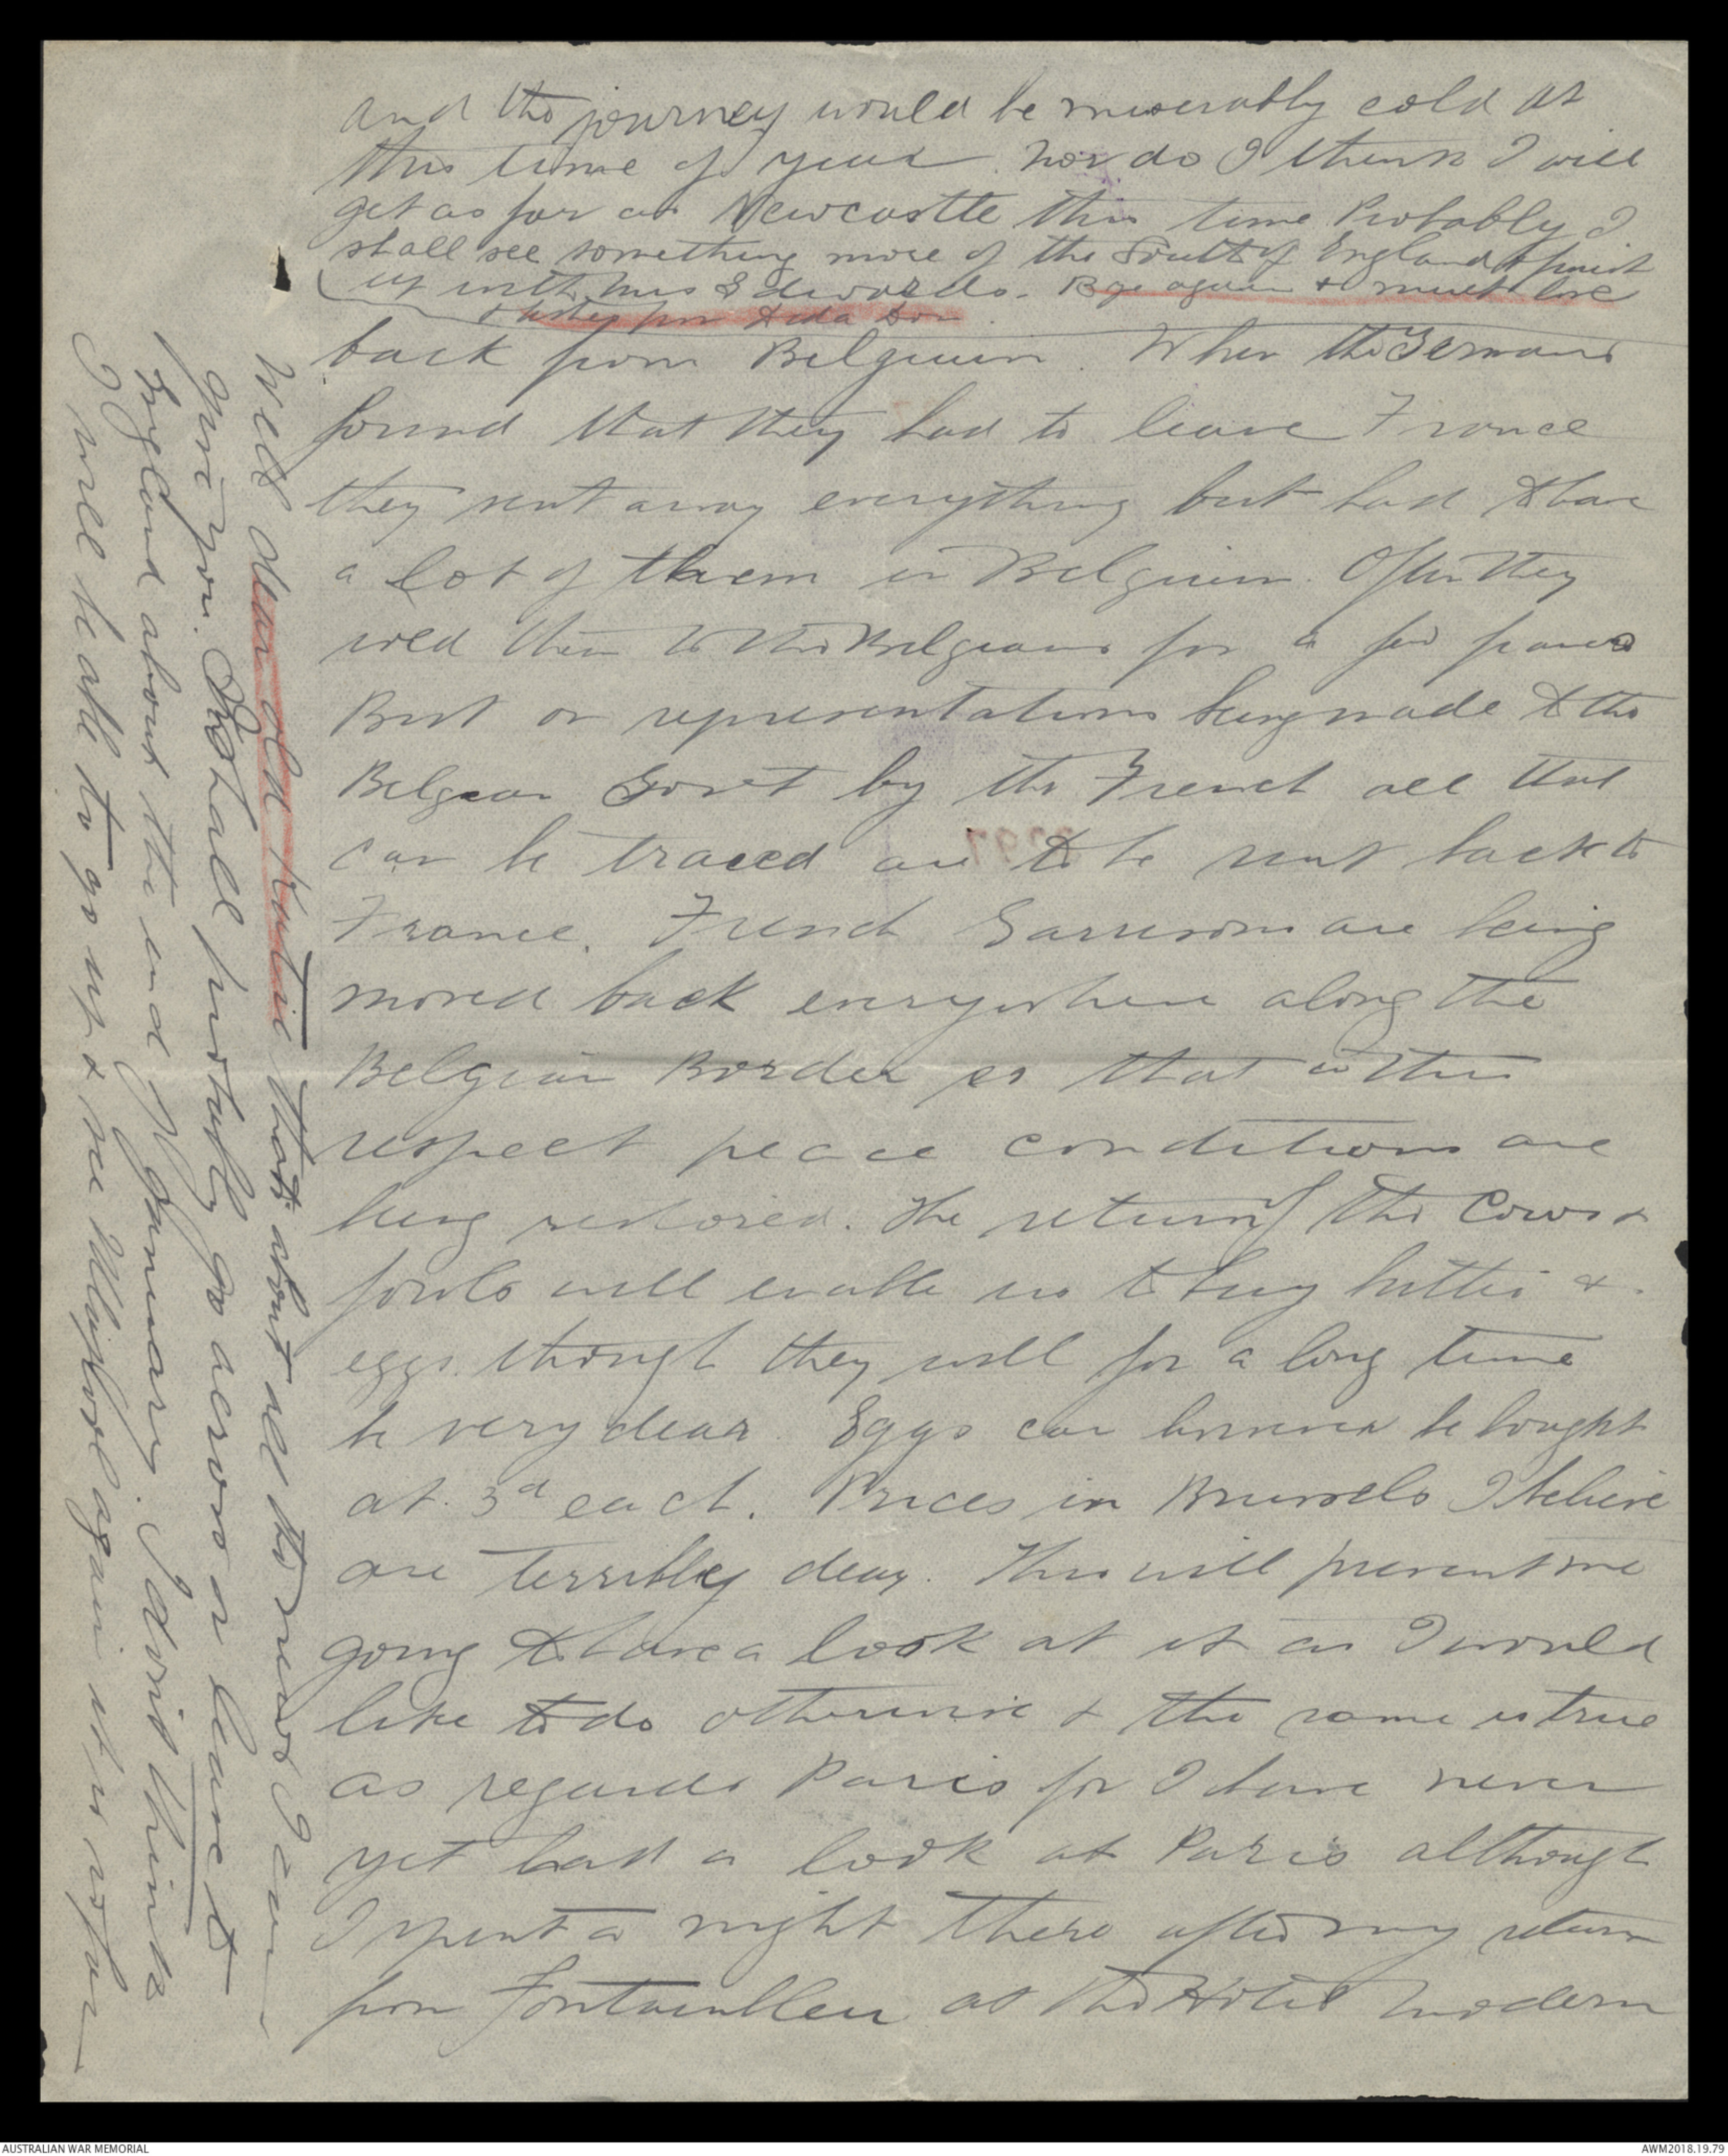 and the journey would be miserably cold at
this time of year. Nor do I think I will
get as far as Newcastle this time Probably I
shall see something more of the South of England & finish
up with Mrs Edwards. Bye again & much love
& kisses for
back from Belgium. When the Germans
found that they had to leave France
they sent away everything but had to leave
a lot of them in Belgium. Often they
sold them to the Belgians for a few francs
But on representations being made to the
Belgian Govt by the French all that
can be traced are to be sent back to
France. French Garrisons are being
moved back everywhere along the
Belgian Border so that in this
respect peace conditions are
being restored. The return of the Cows &
fowls will enable us to buy butter &
eggs though they will for a long time
be very dear. Eggs can however be bought
at 3d each. Prices in Brussels I believe
are terribly dear. This will prevent me
going to have a look at it as I would
like to do otherwise & the same is true
as regards Paris for I have never
yet had a look at Paris although
I spent a night there after my return
from Fontainbleu at the Hotel Modern
Well dear old Kiddie that's about all the news I can
give you. I shall probably go across on leave to
England about the end of January. I don't think
I will be able to go up & see again it is so far
AUSTRALIAN WAR MEMORIAL
AWM2018.19.79